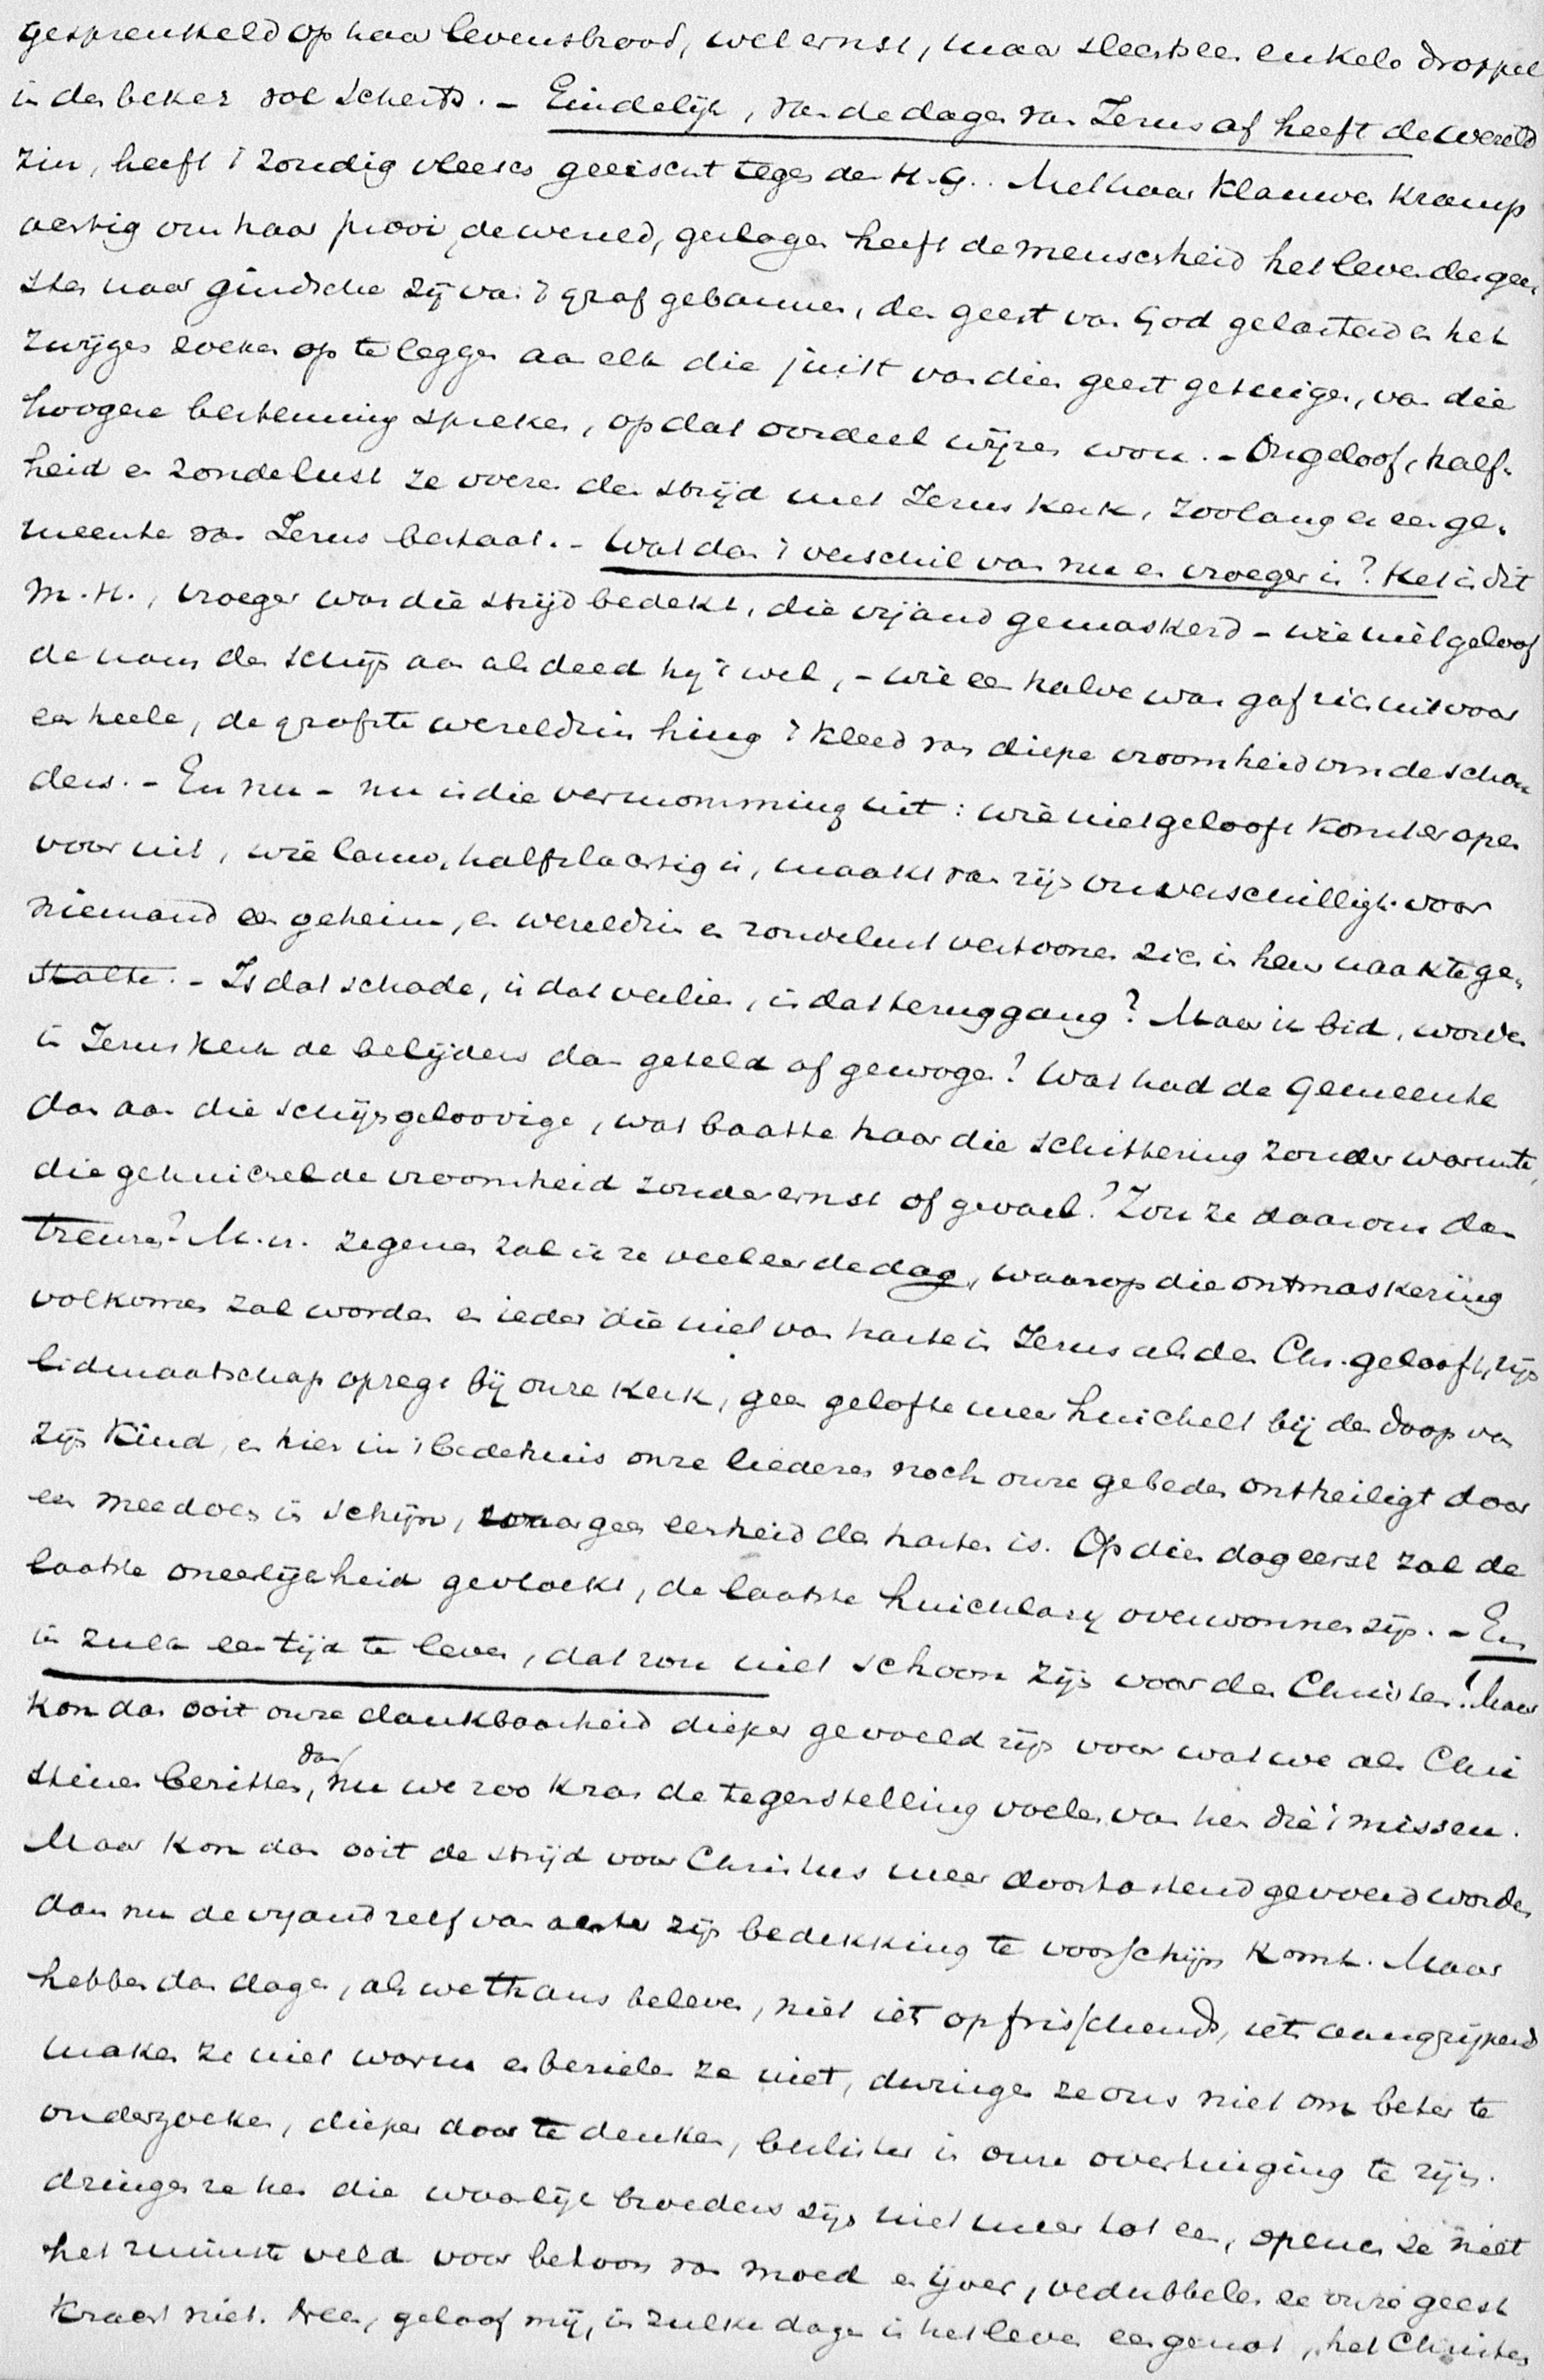 gesprenkeld op haar levensbrood, wel ernst, maar slechts een enkele droppel
in den beker vol scherts. - Eindelijk, van de dagen van Jezus af heeft de wereld
zin, heeft 't zondig vleesch geëischt tegen den H.G.. Met haar klauwen kramp
achtig om haar prooi, de wereld, geslagen heeft de menschheid het leven der gee
sten naar gindsche zij van 't graf gebannen, den geest van God gelasterd en het
zwijgen zoeken op te leggen aan elk die juist van dien geest getuigen, van die
hoogere bestemming spreken, op dat oordeel wijzen wou. - Ongeloof, half-
heid en zondelust ze voeren den strijd met Jezus kerk, zoolang er een ge-
meente van Jezus bestaat. - Wat dan 't verschil van nu en vroeger is? Het is dit
M.H., vroeger was die strijd bedekt, die vijand gemaskerd - wie niet geloof
de nam den schijn aan als deed hij 't wel, - wie een halve was gaf zich uit voor
een heele, de grofste wereldzin hing 't kleed van diepe vroomheid om de schou
ders. - En nu - nu is die vermomming uit: wie niet gelooft komt er open
voor uit, wie lauw, halfslachtig is, maakt van zijn onverschilligh. voor
niemand een geheim, en wereldzin en zondelust vertoonen zich in hun naakte ge-
stalte. - Is dat schade, is dat verlies, is dat teruggang? Maar ik bid, worden
in Jezus kerk de belijders dan geteld of gewogen? Wat had de Gemeente
dan aan die schijngeloovige, wat baatte haar die schittering zonder warmte,
die gehuichelde vroomheid zonder ernst of gevoel? Zou ze daarom dan
treuren? M.H. zegenen zal ik ze veeleer de dag, waarop die ontmaskering
volkomen zal worden en ieder die niet van harte in Jezus als den Chr. gelooft, zijn
lidmaatschap opzegt bij onze kerk, geen gelofte meer huichelt bij den doop van
zijn kind, en hier in 't bedehuis onze liederen noch onze gebeden ontheiligt door
een meedoen in schijn, waar geen eenheid der harten is. Op dien dag eerst zal de
laatste oneerlijkheid gevloekt, de laatste huichelarij overwonnen zijn. - En
in zulk een tijd te leven, dat zou niet schoon zijn voor den Christen! Maar
kon dan ooit onze dankbaarheid dieper gevoeld zijn voor wat we als Chri
stenen bezitten, dan nu we zoo kras de tegenstelling voelen van hen die 't missen.
Maar kon dan ooit de strijd voor Christus meer doortastend gevoerd worden
dan nu de vijand zelf van achter zijn bedekking te voorschijn komt. Maar
hebben dan dagen, als we thans beleven, niet iets opfrisschends, iets aangrijpends
maken ze niet warm en bezielen ze niet, dwingen ze ons niet om beter te
onderzoeken, dieper door te denken, beslister in onze overtuiging te zijn.
dringen ze hen die waarlijk broeders zijn niet meer tot een, openen ze niet
het ruimste veld voor betoon van moed en ijver, verdubbelen ze onze geest
kracht niet. Neen, geloof mij, in zulke dagen is het leven een genot, het Christen